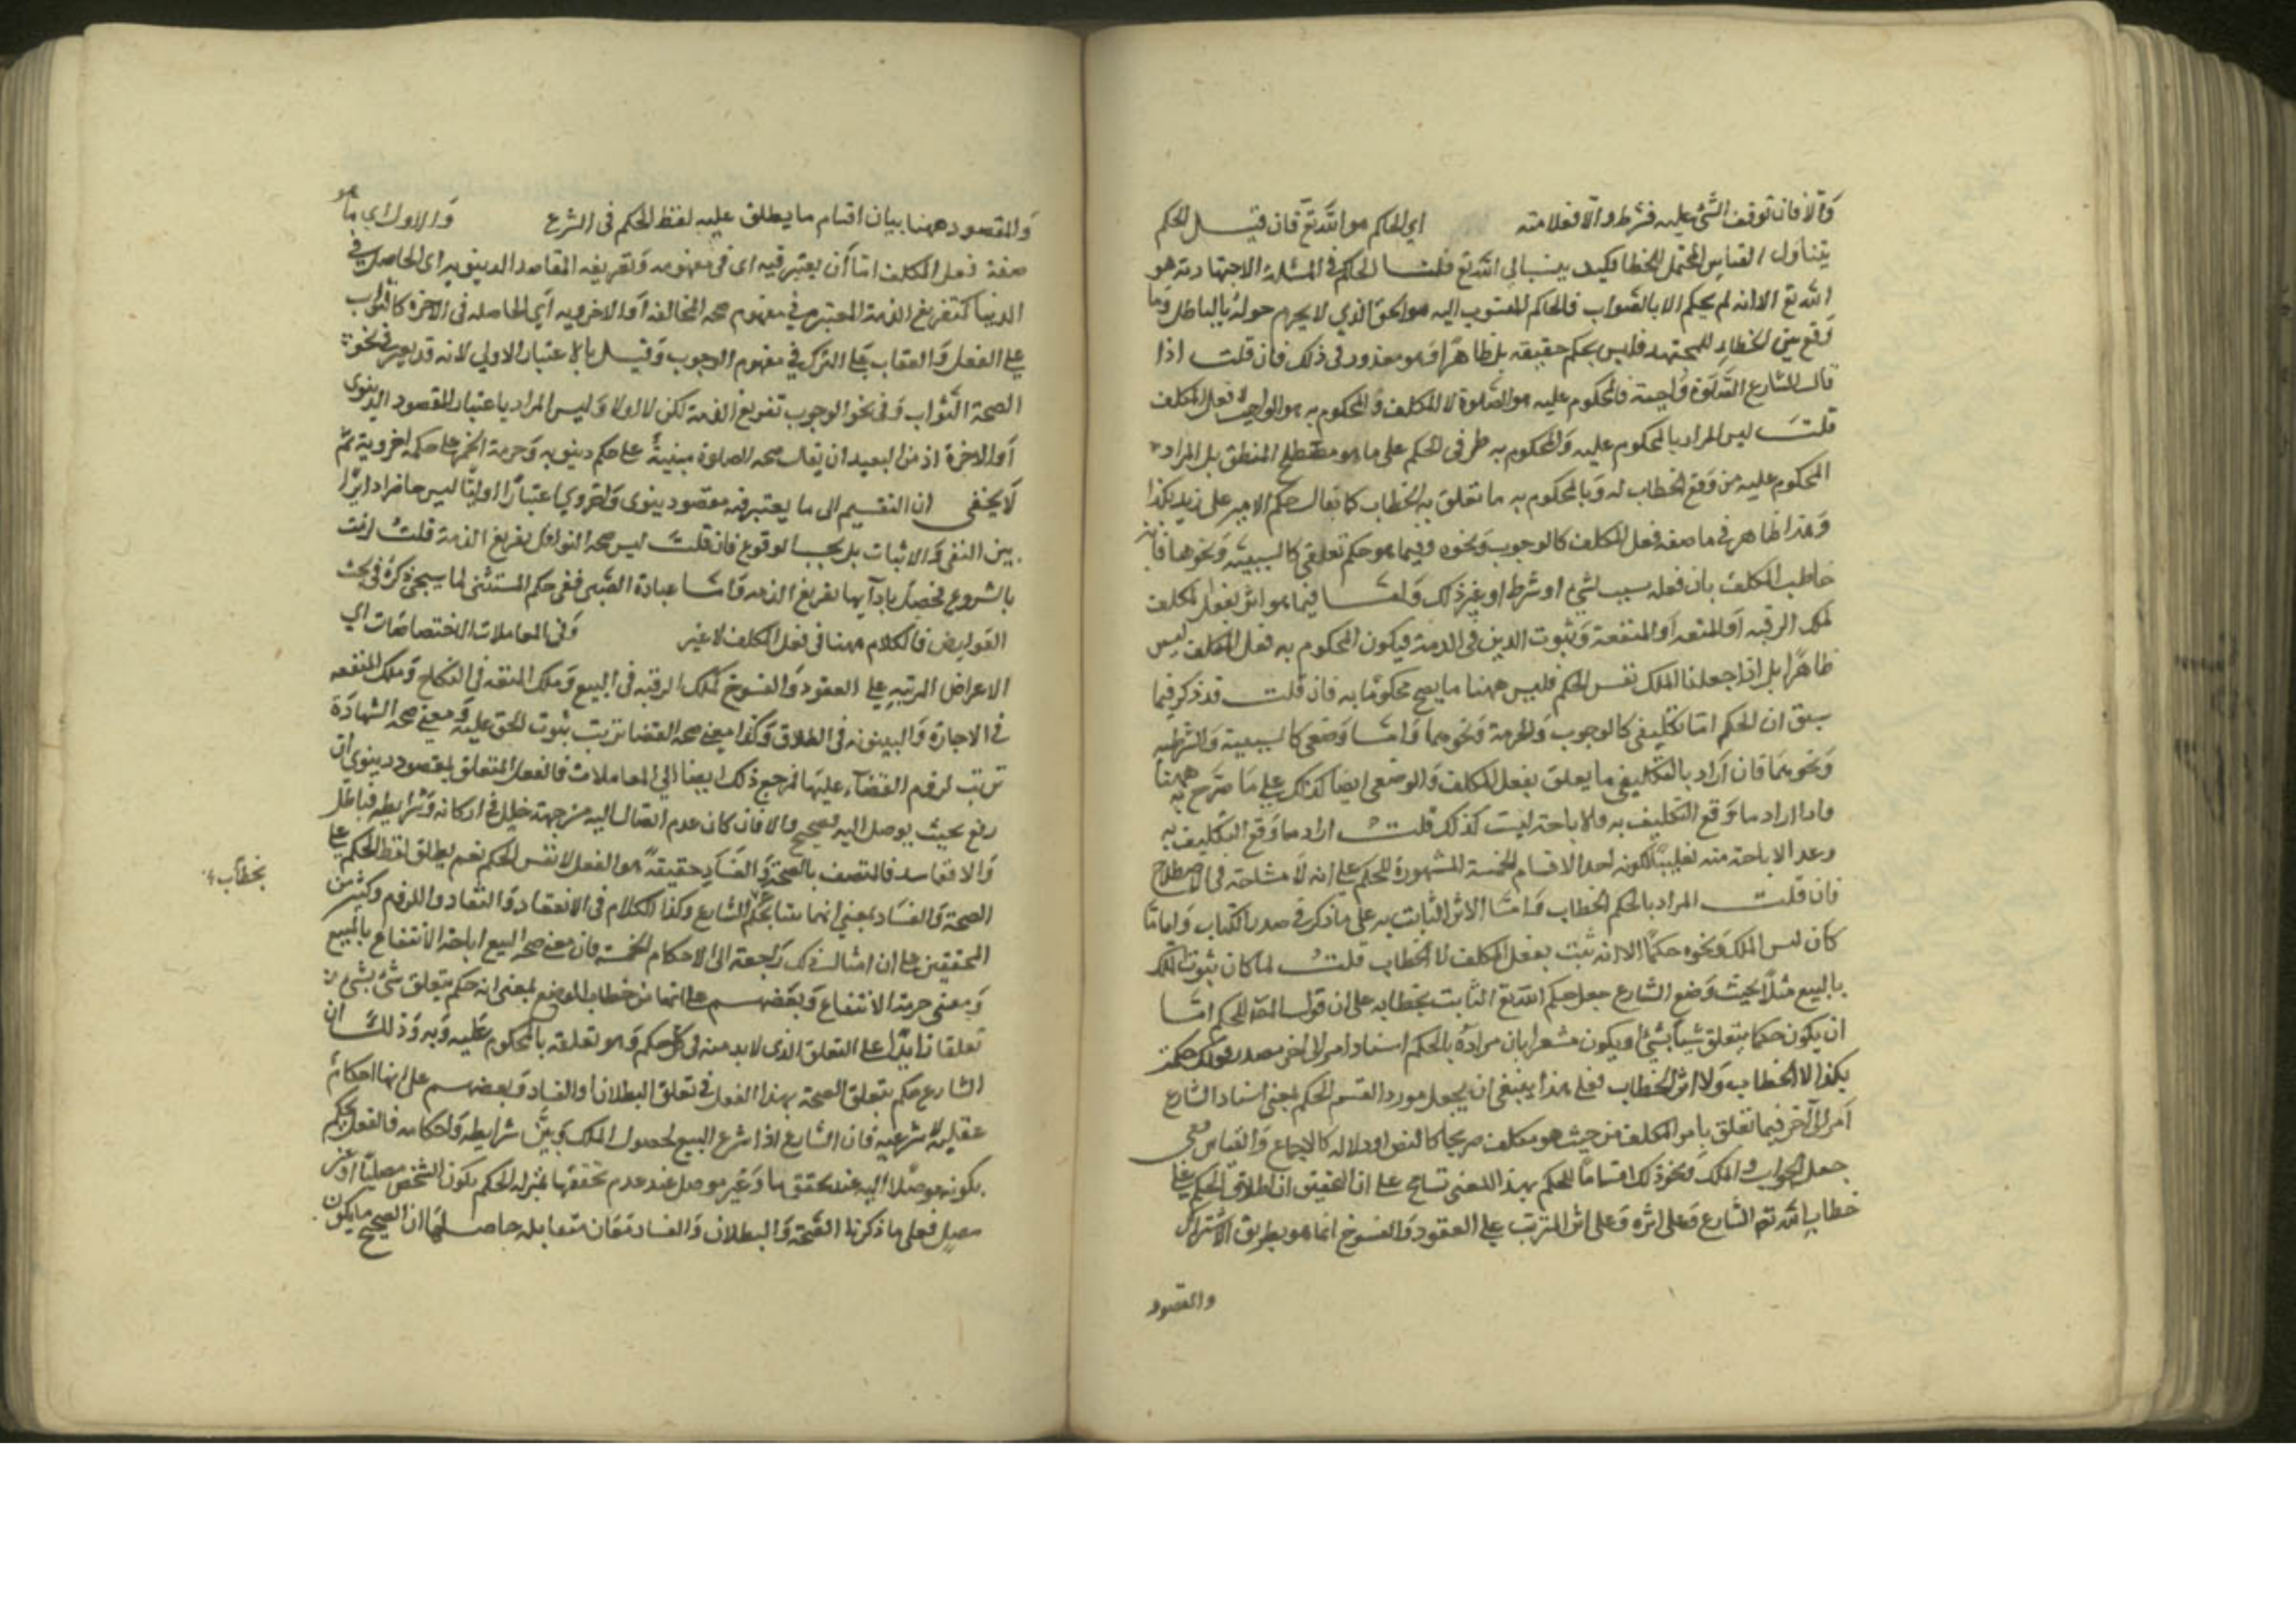 والا فان توقف الشئ عليه فشرط والا فعلامته اي الحاكم هو الله تع فان قيل الحكم
يتناول القياس المحتمل للخطا فكيف ينسب الى الله تع قلنا الحاكم في المسئلة الاجتهادية هو
الله تع الا انه لم يحكم الا بالصواب فالحاكم المنسوب اليه هو الحق الذي لا يحوم حوله الباطل وما
وقع من الخطاء للمجتهد فليس بحكم حقيقة بل ظاهرًا وهو معذور في ذلك فان قلت اذا
قال الشارع الصلوة واجبة فالمحكوم عليه هو الصلوة لا المكلف والمحكوم به هو الواجب لا فعل المكلف
قلت ليس المراد بالمحكوم عليه والمحكوم به طرفي الحكم على ما هو مصطلح المنطق بل المراد
المحكوم عليه من وقع الخطاب له وبالمحكوم به ما تعلق به الخطاب كما يقال حكم الامير على زيد بكذا
وهذا ظاهر في ما صفة فعل المكلف كالوجوب ونحوه وفيما هو حكم تعلقي كالسببية ونحوها فانه
خاطب المكلف بان فعله سبب لشئ او شرط او غير ذلك واما فيما هو اثر لفعل المكلف
كملك الرقبه او المتعه او المنفعة وثبوت الدين في الذمة فيكون المحكوم به فعل المكلف ليس
ظاهرًا بل اذا جعلنا الملك نفس الحكم فليس ههنا ما يصح محكومًا به فان قلت قد ذكر فيما
سبق ان الحكم اما تكليفي كالوجوب والحرمة ونحوهما واما وضعي كالسببية والشرطيه
ونحوهما فان اراد بالتكليفي ما يعلق بفعل المكلف فالوضعى ايضا كذلك على ما صرح به ههنا
وان اراد ما وقع التكليف به فالاباحة ليست كذلك قلت اراد ما وقع التكليف به
وعد الاباحة منه تغليبًا لكونه احد الاقسام الخمسة المشهورة للحكم على انه لا مشاحة في الاصطلاح
فان قلت المراد بالحكم الخطاب واما الاثر الثابت به على ما ذكر في صدر الكتاب وايا ما
كان ليس الملك ونحوه حكمًا الا انه ثبت بفعل المكلف لا الخطاب قلت لما كان ثبوت الملك
بالبيع مثلًا بحيث وضع الشارع جعل حكم الله تع الثابت بخطابه على ان قول المص للحكم اما
ان يكون حكما بتعلق شيأ بشئ او يكون مشعرا بان مراده بالحكم اسناد امر الى اخر مصدر قولك حكمت
بكذا لا الخطاب ولا اثر الخطاب فعلى هذا ينبغى ان يجعل مورد القسم الحكم بمعنى اسناد الشارع
امرا الى آخر فيما تعلق بامر المكلف من حيث هو مكلف صريحًا كالنص او دلاله كالاجماع والقياس ففي
جعل الوجوب والملك ونحو ذلك اقسامًا للحكم بهذا المعنى تسامح على ان التحقيق ان اطلاق الحكم على
خطاب الله تع الشارع وعلى اثره وعلى اثر المترتب على العقود والفسوخ انما هو بطريق الاشتراك
والمقصود
والمقصود ههنا بيان اقسام ما يطلق عليه لفظ الحكم في الشرع والاول اي ما هو
صفة فعل المكلف اما أن يعتبر فيه اى في مفهومه وتعريفه المقاصد الدينويه اى الحاصلة في
الدنيا كتفريغ الذمة المعتبر في مفهوم صحه المخالفه او الاخرويه أي الحاصله في الاخرة كالثواب
على الفعل والعقاب على الترك في مفهوم الوجوب وقيل بالاعتبار الاولي لانه قد يعتبر في نحو
الصحة الثواب وفى نحو الوجوب تفريغ الذمة لكن لا اولا وليس المراد باعتبار المقصود الدينوى
او الاخرة اذ من البعيد ان يقال صحه الصلوة مبنية على حكم دينويه وحرمة الخمر على حكمه اخروية ثم
لا يخفى ان التقسيم الى ما يعتبر فيه مقصود دينوى واخروي اعتبارًا اوليًا ليس حاضرا دايرًا
بين النفى والاثبات بل بحسب الوقوع فان قلت ليس صحه النوافل تفريغ الذمة قلت لزمت
بالشروع فحصل بادآيها تفريغ الذمه واما عبادة الصبى ففي حكم المستثنى لما سيجئ ذكره في بحث
العوارض فالكلام ههنا فى فعل المكلف لا غير وفى المعاملات الاختصاصات اي
الاعراض المرتبه على العقود والفسوخ كملك الرقبه في البيع وملك المتعه في النكاح وملك المنفعه
في الاجارة والبينونه في الطلاق وكذا معنى صحه القضا ترتب ثبوت الحق عليه ومعنى صحه الشهادة
ترتب لزوم القضآء عليها فمرجع ذلك ايضا الي المعاملات فالفعل المتعلق بمقصود دينوى ان
وقع بحيث يوصل اليه فصحيح والا فان كان عدم ايصاله اليه من جهة خلل في اركانه وشرايطه فباطل
والا ففاسد فالمتصف بالصحة والفساد حقيقةً هو الفعل لا نفس الحكم نعم يطلق لفظ الحكم على
بخطاب
الصحة والفساد بمعنى انهما ثبتا بحكم الشارع وكذا الكلام في الانعقاد والنفاذ واللزوم وكثير من
المحققين على ان امثال ذلك راجعة الى الاحكام الخمسة فان معنى صحة البيع اباحة الانتفاع بالمبيع
ومعنى حرمة الانتفاع وبعضهم على انها من خطاب الوضع بمعنى انه حكم بتعلق شئ بشئ
تعلقا زايدًا على التعلق الذى لا بد منه في كل حكم وهو تعلقه بالمحكوم عليه وبه وذلك ان
الشارع حكم بتعلق الصحة بهذا الفعل في تعلق البطلان او الفساد وبعضهم على انها احكام
عقلية لا شرعيه فان الشارع اذا شرع البيع لحصول الملك وبين شرايطه واحكامه فالعقل يحكم
بكونه موصلًا اليه عند تحققها وغير موصل عند عدم تحققها بمنزله الحكم بكون الشخص مصليًا او غير
مصل فعلى ما ذكرنا الصحة والبطلان والفساد معان متقابله حاصلها ان الصحيح ما يكون